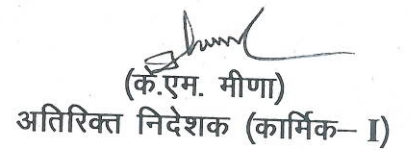 (के.एम. मीणा)
अतिरिक्त निदेशक (कार्मिक– I)